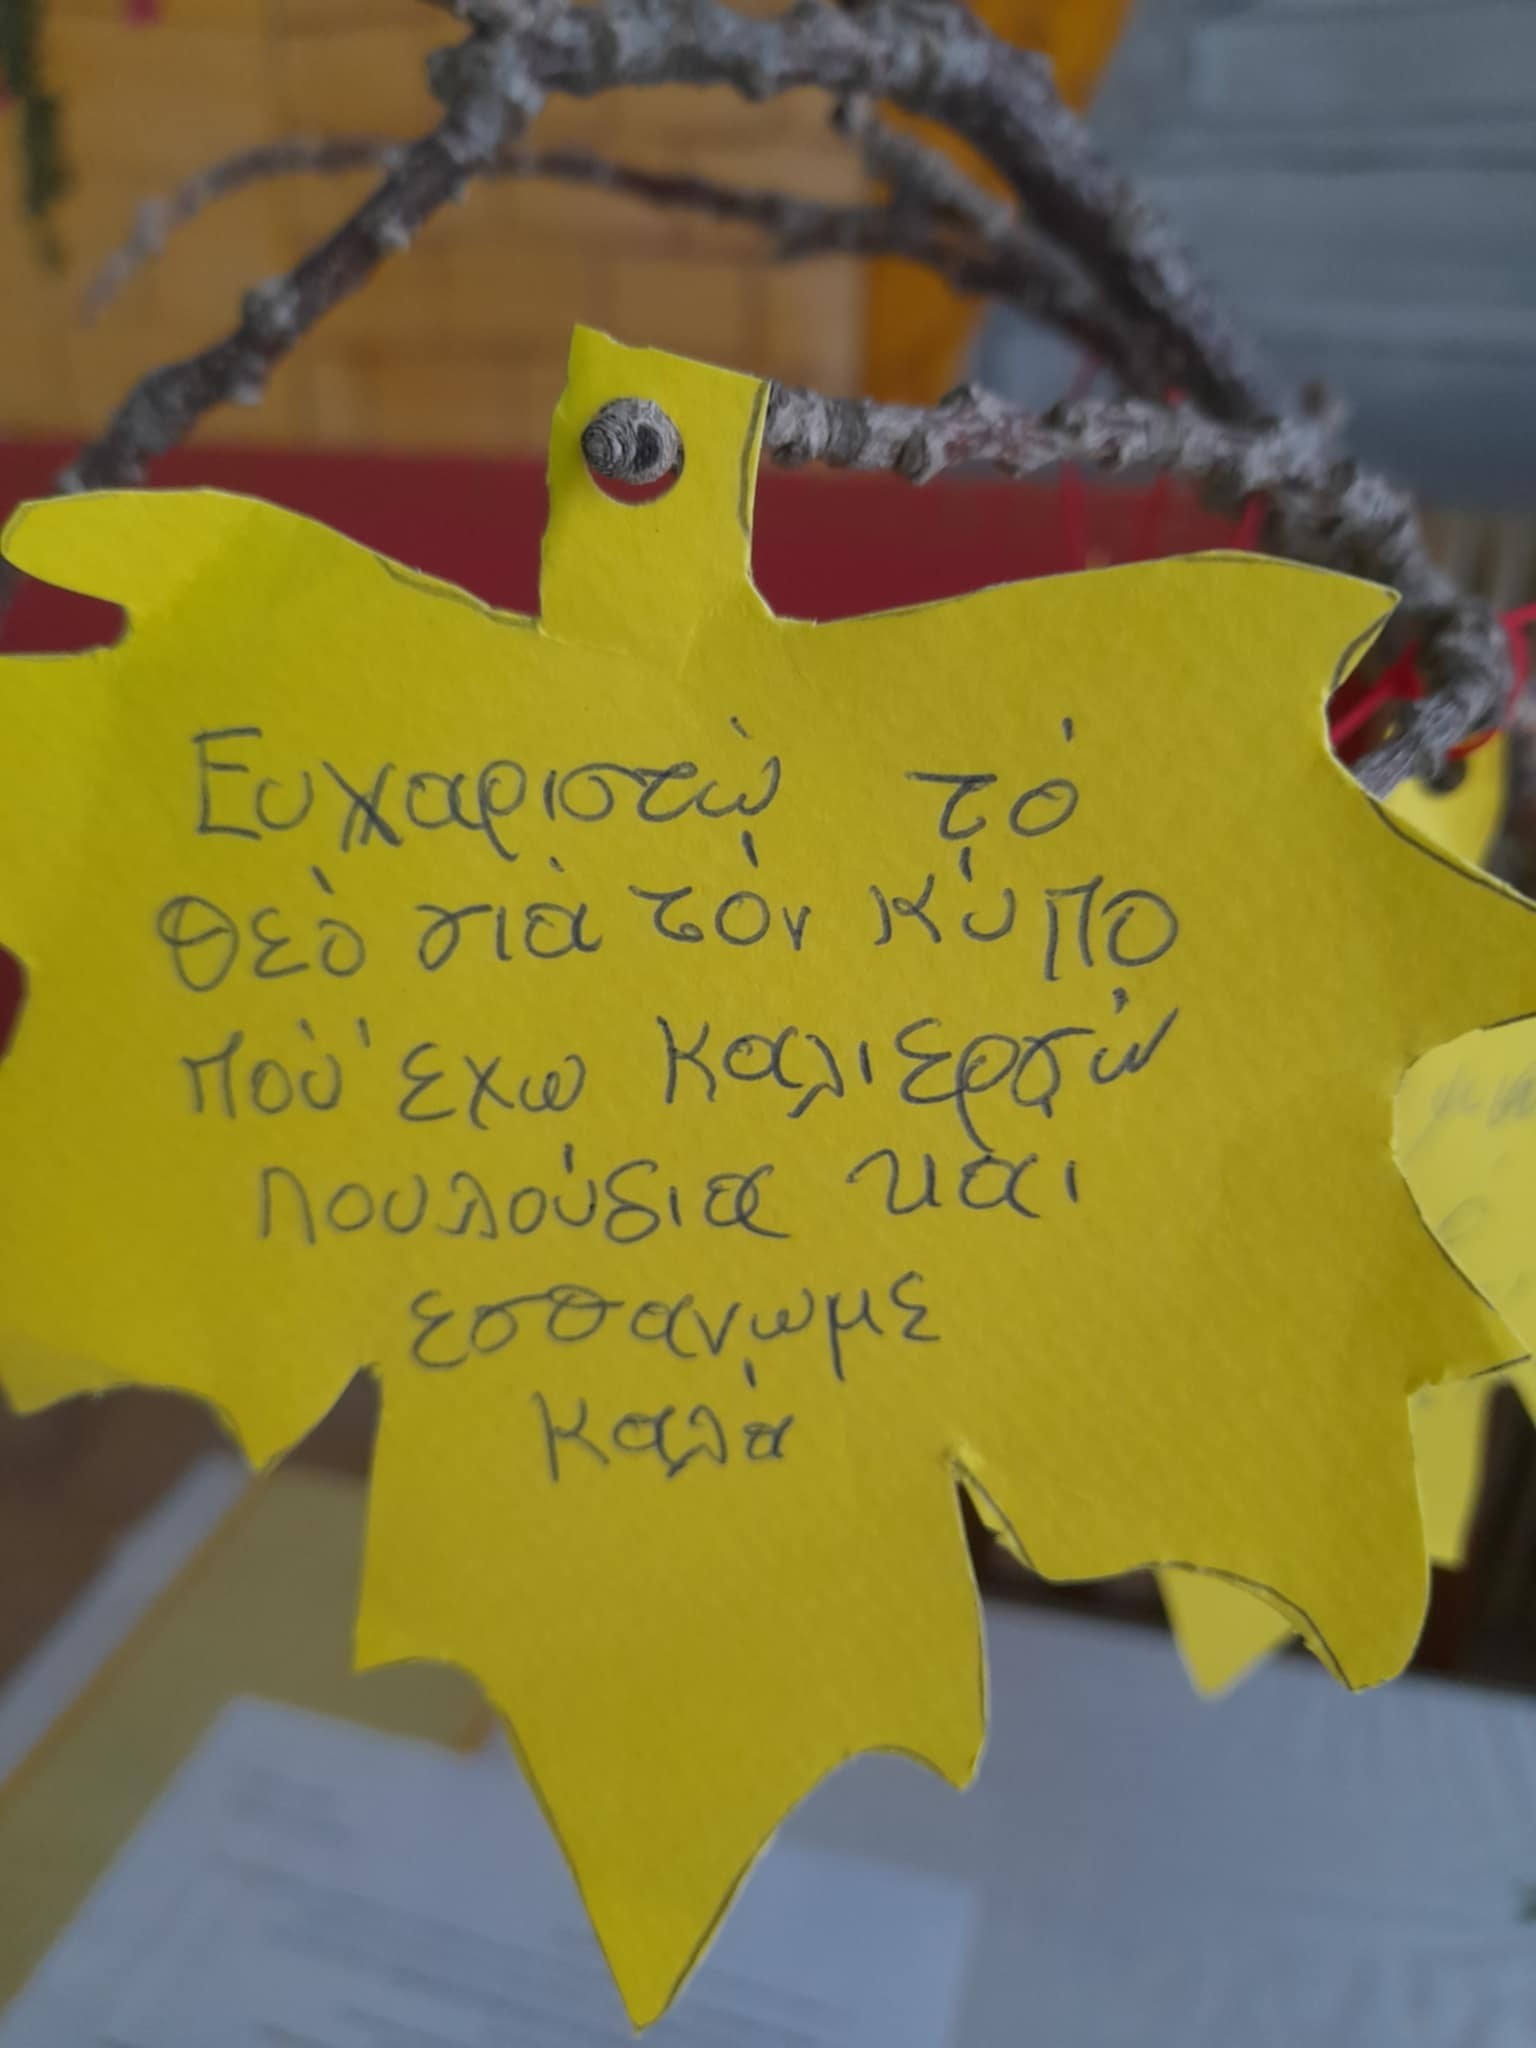 Ευχαριστώ τό
Θεό γιά τόν κύπο
πού έχω καλιεργώ
λουλούδια και
εσθανωμε
καλά